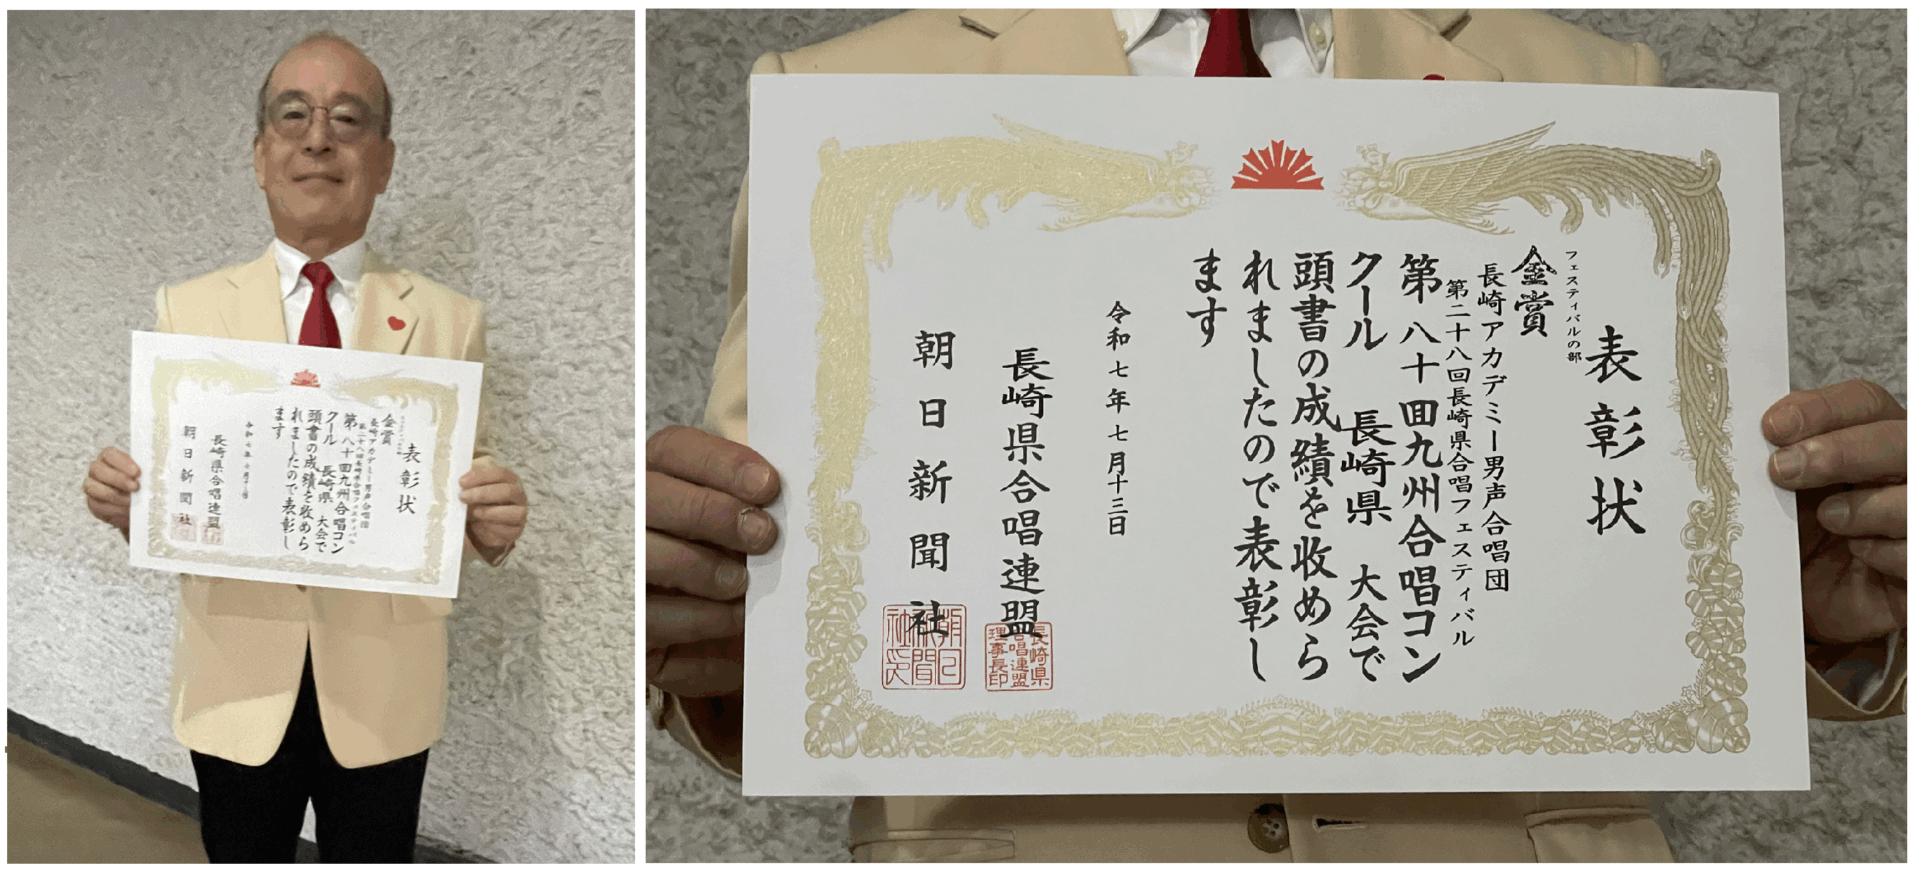 表彰状
金賞
長崎アカデミー男声合唱団
第二十八回長崎県合唱フェスティバル
第八十回九州合唱コン
クール 長崎県 大会で
頭書の成績を収めら
れましたので表彰し
ます
長崎県合唱連盟
朝日新聞社
表彰状
フェスティバルの部
金賞
長崎アカデミー男声合唱団
第二十八回長崎県合唱フェスティバル
第八十回九州合唱コン
クール 長崎県 大会で
頭書の成績を収めら
れましたので表彰し
ます
令和七年七月十三日
長崎県合唱連盟
長崎県
合唱連盟
理事長印
朝日新聞社
朝日
新聞
社印